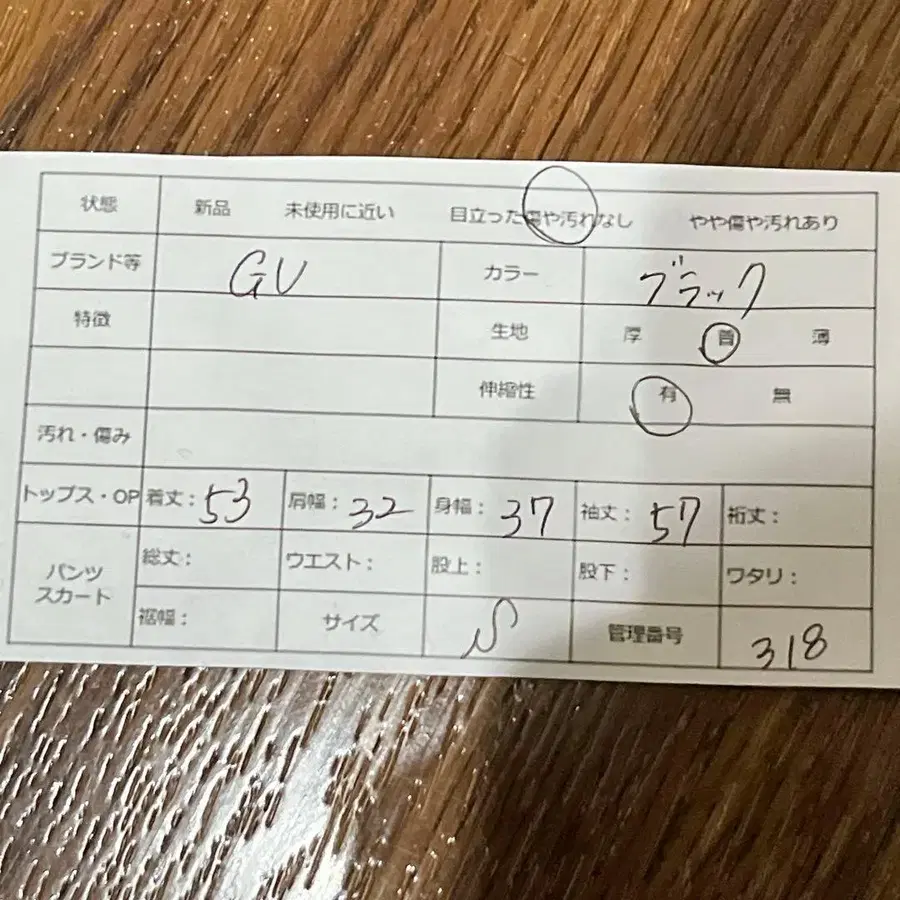 状態 新品 未使用に近い 目立った傷や汚れなし やや傷や汚れあり
ブランド等 GU カラー ブラック
特徴 生地 厚 普 薄
伸縮性 有 無
汚れ・傷み
トップス・OP 着丈: 53 肩幅: 32 身幅: 37 袖丈: 57 裄丈:
パンツ スカート 総丈: ウエスト: 股上: 股下: ワタリ:
裾幅: サイズ S 管理番号 318